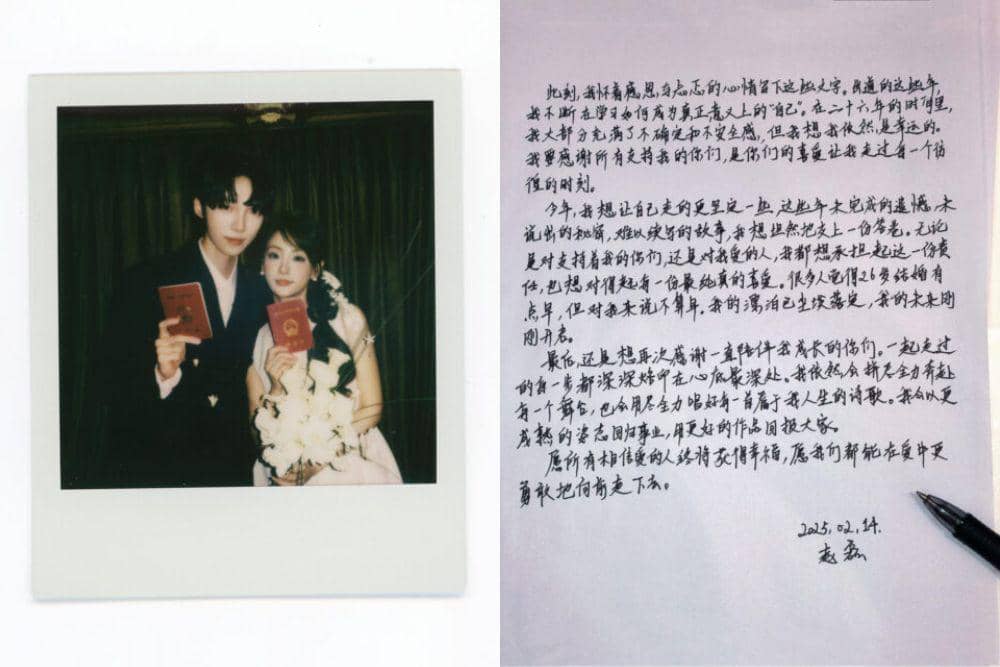 此刻，我怀着感恩与忐忑的心情留下这些文字。出道的这些年，
我不断在学习如何成为真正意义上的"自己"。在二十六年的时间里，
我大部分充满了不确定和不安全感，但我想我依然是幸运的。
我要感谢所有支持我的你们，是你们的喜爱让我走过每一个彷
徨的时刻。
今年，我想让自己走的更坚定一些，这些年未完成的遗憾，未
说出的秘密，难以续写的故事，我想坦然地交上一份答卷。无论
是对支持着我的你们，还是对我爱的人，我都想承担起这一份责
任，也想对得起每一份最纯真的喜爱。很多人觉得26岁结婚有
点早，但对我来说不算早。我的漂泊已尘埃落定，我的未来刚
刚开启。
最后，还是想再次感谢一直陪伴我成长的你们。一起走过
的每一步都深深烙印在心底最深处。我依然会拼尽全力奔赴
每一个舞台，也会用尽全力唱好每一首属于我人生的诗歌。我会以更
成熟的姿态回归事业，用更好的作品回报大家。
愿所有相信爱的人终将获得幸福，愿我们都能在爱中更
勇敢地向前走下去。
2025.02.14.
赵磊